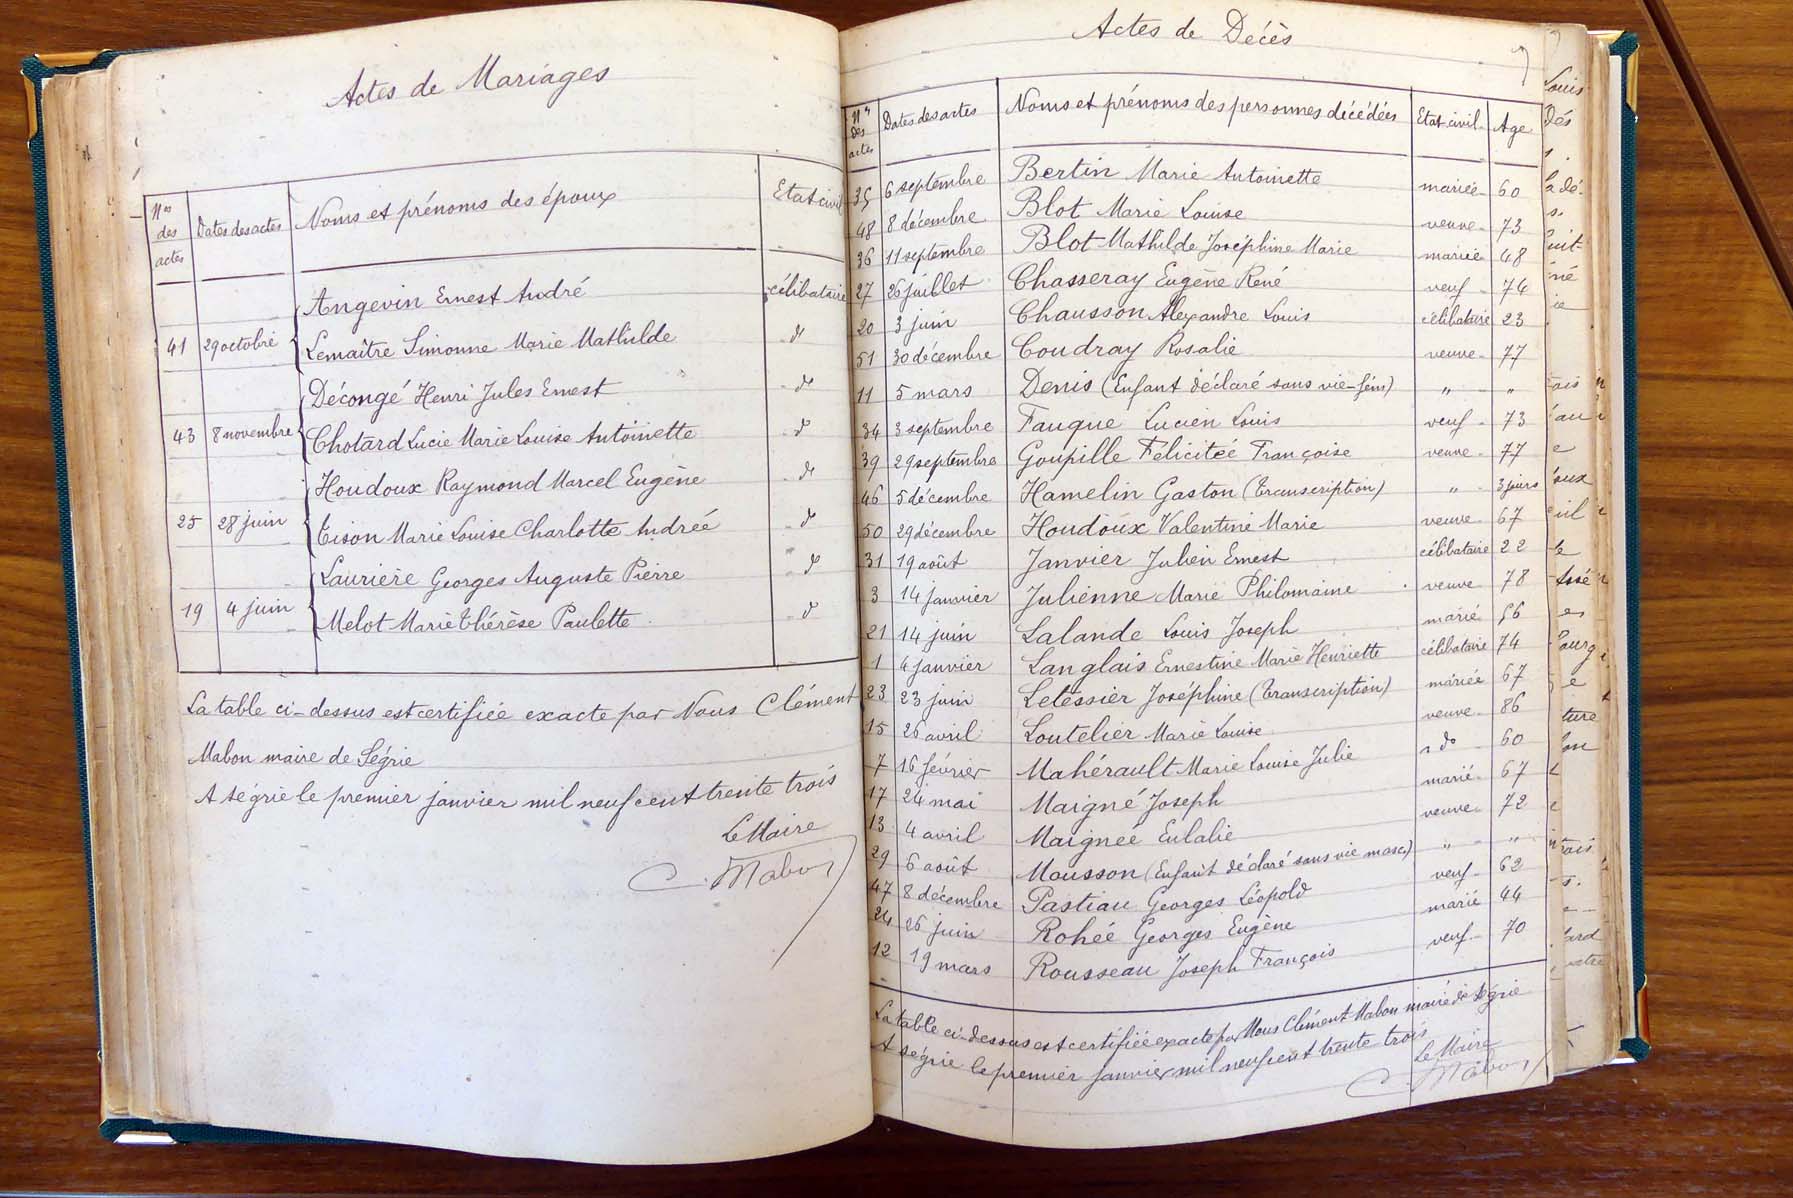 Actes de Mariages
Nos des actes | Dates des actes | Noms et prénoms des époux | Etat civil
Angevin Ernest André | célibataire
41 | 29 octobre | Lemaître Simonne Marie Mathilde | do
Décongé Henri Jules Ernest | do
43 | 8 novembre | Chotard Lucie Marie Louise Antoinette | do
Houdoux Raymond Marcel Eugène | do
25 | 28 juin | Tison Marie Louise Charlotte Andréé | do
Laurière Georges Auguste Pierre | do
19 | 4 juin | Melot Marie Thérèse Paulette | do
La table ci-dessus est certifiée exacte par Nous Clément
Mabon maire de Ségrie
A Ségrie le premier janvier mil neuf cent trente trois
Le Maire
C. Mabon
Actes de Décès
7
Nos des actes | Dates des actes | Noms et prénoms des personnes décédées | Etat civil | Age
35 | 6 septembre | Bertin Marie Antoinette | mariée | 60
48 | 8 décembre | Blot Marie Louise | veuve | 73
36 | 11 septembre | Blot Mathilde Joséphine Marie | mariée | 48
27 | 26 juillet | Chasseray Eugène René | veuf | 74
20 | 3 juin | Chausson Alexandre Louis | célibataire | 23
51 | 30 décembre | Coudray Rosalie | veuve | 77
11 | 5 mars | Denis (Enfant déclaré sans vie-fém) | " | "
34 | 3 septembre | Fauque Lucien Louis | veuf | 73
39 | 29 septembre | Goupille Felicitée Françoise | veuve | 77
46 | 5 décembre | Hamelin Gaston (Transcription) | " | 3 jours
50 | 29 décembre | Houdoux Valentine Marie | veuve | 67
31 | 19 août | Janvier Julien Ernest | célibataire | 22
3 | 14 janvier | Julienne Marie Philomaine | veuve | 78
21 | 14 juin | Lalande Louis Joseph | marié | 56
1 | 4 janvier | Langlais Ernestine Marie Henriette | célibataire | 74
23 | 23 juin | Letessier Joséphine (Transcription) | mariée | 67
15 | 26 avril | Loutelier Marie Louise | veuve | 86
7 | 16 février | Mahérault Marie Louise Julie | do | 60
17 | 24 mai | Maigné Joseph | marié | 67
13 | 4 avril | Maignée Eulalie | veuve | 72
29 | 6 août | Mousson (Enfant déclaré sans vie masc) | " | "
47 | 8 décembre | Pastiau Georges Léopold | veuf | 62
24 | 26 juin | Rohée Georges Eugène | marié | 44
12 | 19 mars | Rousseau Joseph François | veuf | 70
La table ci-dessus est certifiée exacte par Nous Clément Mabon maire de Ségrie
A Ségrie le premier janvier mil neuf cent trente trois
Le Maire
C. Mabon